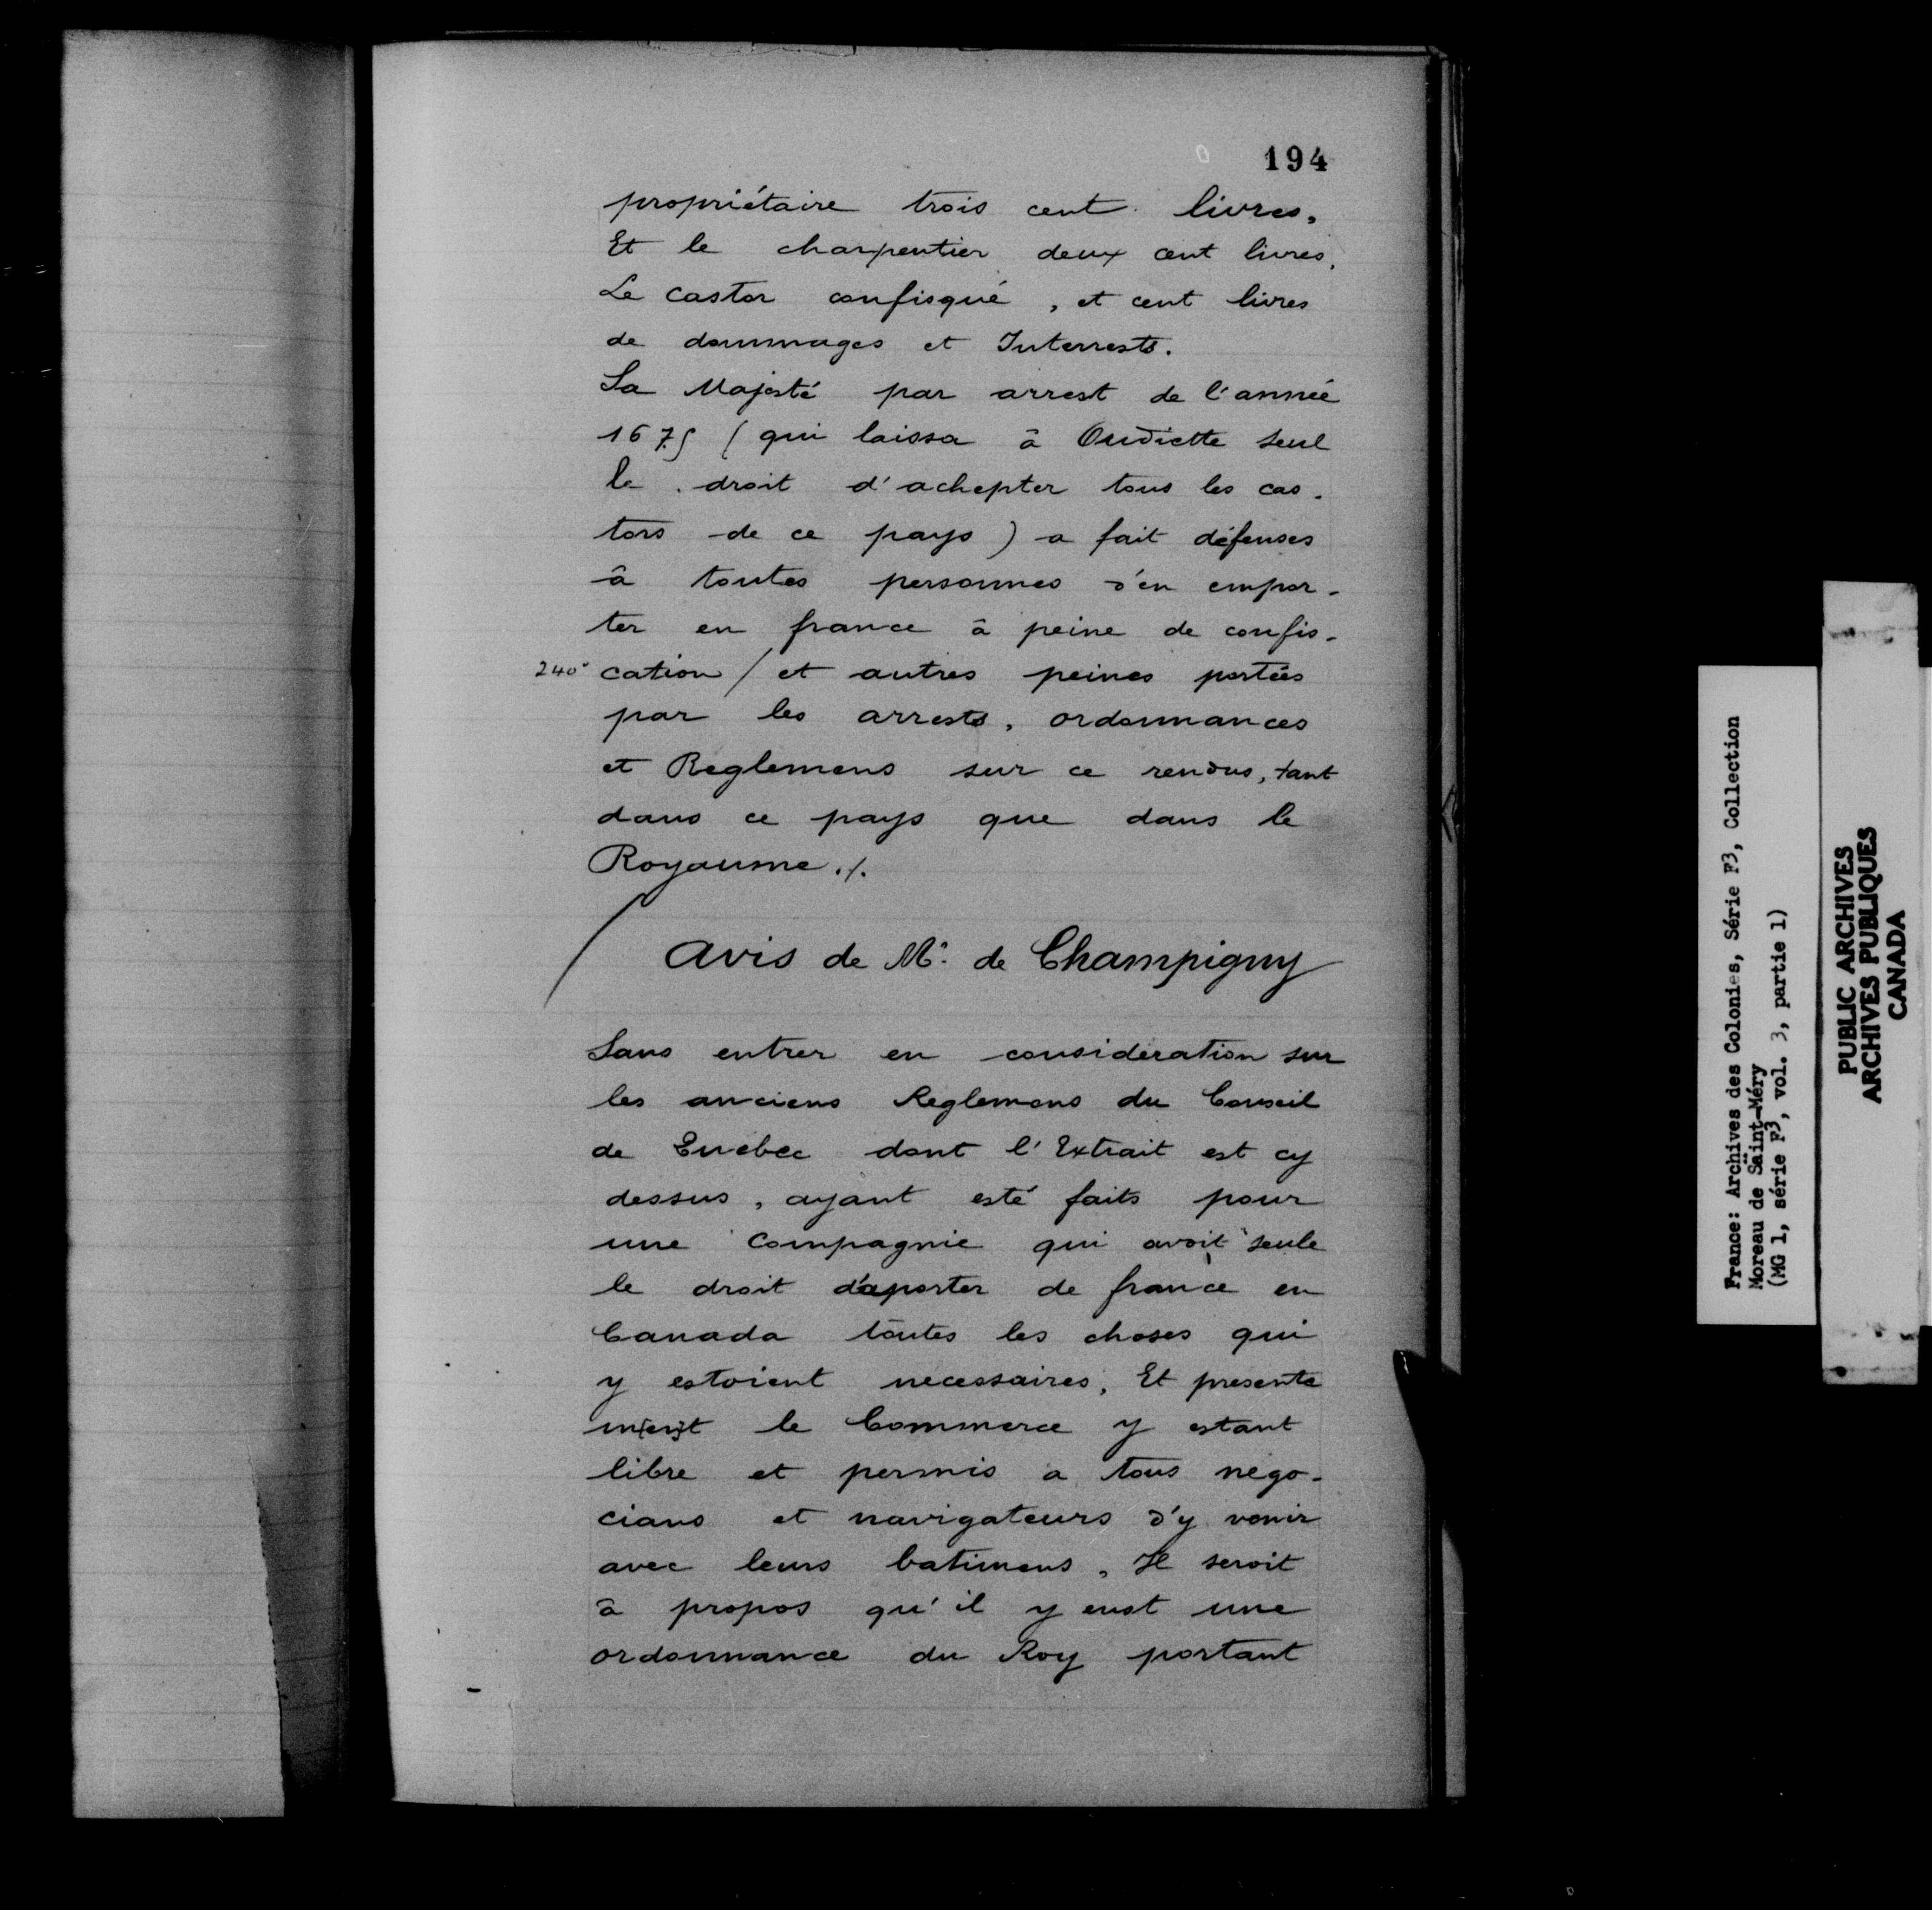 194
propriétaire trois cent livres,
Et le charpentier deux cent livres,
Le castor confisqué, et cent livres
de dommages et Interrests.
Sa Majesté par arrest de l'année
1675 (qui laissa à Oudiette seul
le droit d'achepter tous les cas-
tors de ce pays) a fait défenses
à toutes personnes d'en empor-
ter en france à peine de confis-
240° cation / et autres peines portées
par les arrests, ordonnances
et Reglemens sur ce rendus, tant
dans ce pays que dans le
Royaume ./.
Avis de Mr. de Champigny
Sans entrer en consideration sur
les anciens Reglemens du Conseil
de Quebec dont l'Extrait est cy
dessus, ayant esté faits pour
une Compagnie qui avoit seule
le droit d'aporter de france en
Canada toutes les choses qui
y estoient necessaires, Et presente
m[en]t le Commerce y estant
libre et permis a tous nego-
cians et navigateurs d'y venir
avec leurs batimens, Il seroit
à propos qu'il y eust une
ordonnance du Roy portant
France: Archives des Colonies, Série F3, Collection
Moreau de Saint-Méry
(MG 1, série F3, vol. 3, partie 1)
PUBLIC ARCHIVES
ARCHIVES PUBLIQUES
CANADA